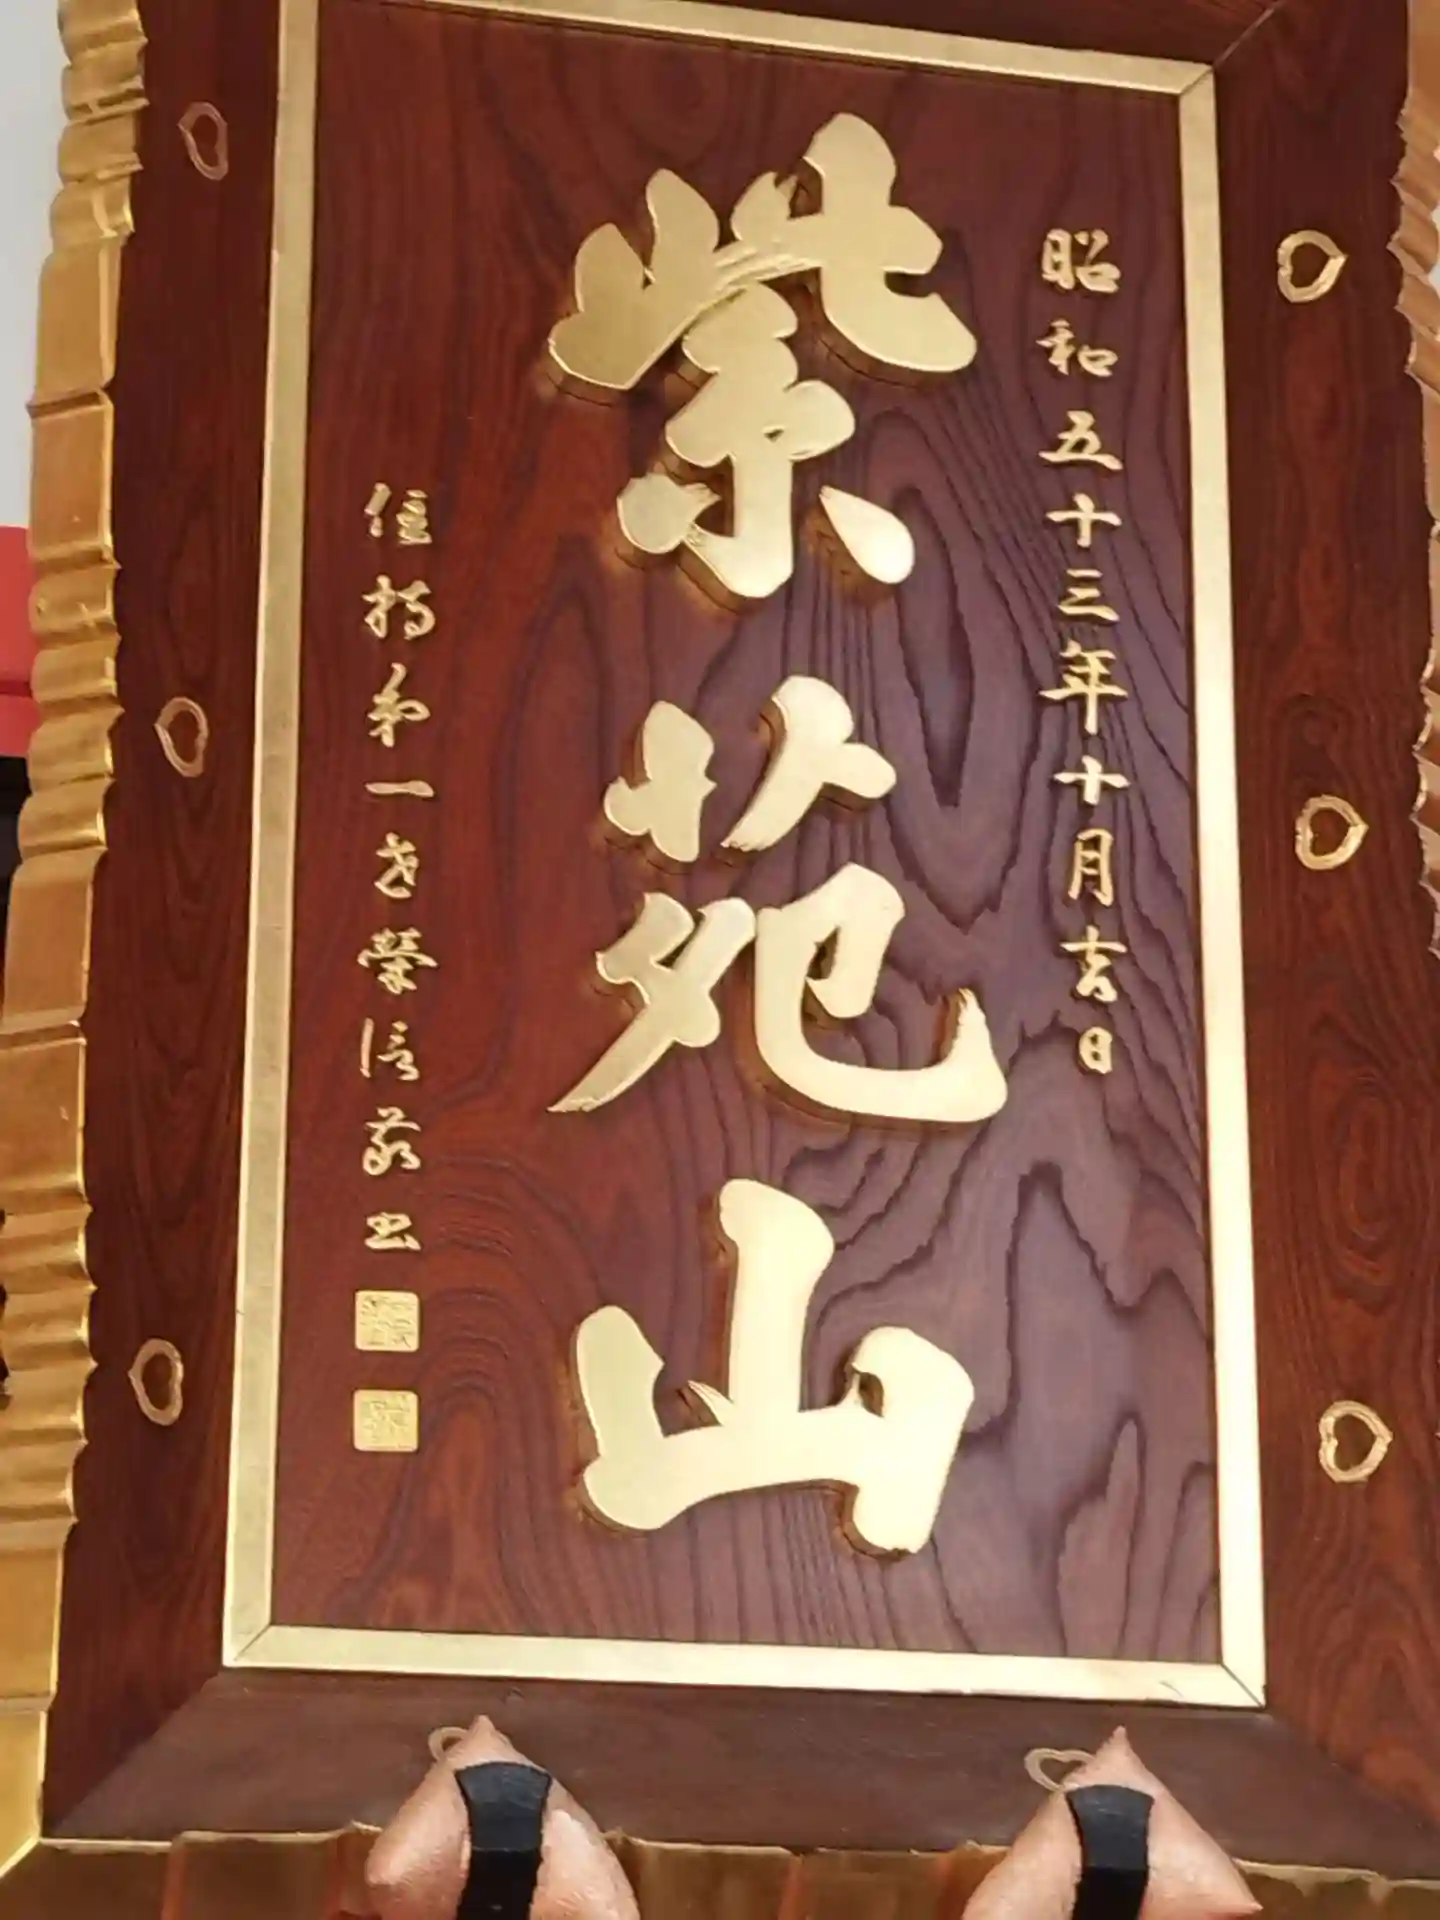 昭和五十三年十月吉日
紫苑山
住持第一世榮信敬書